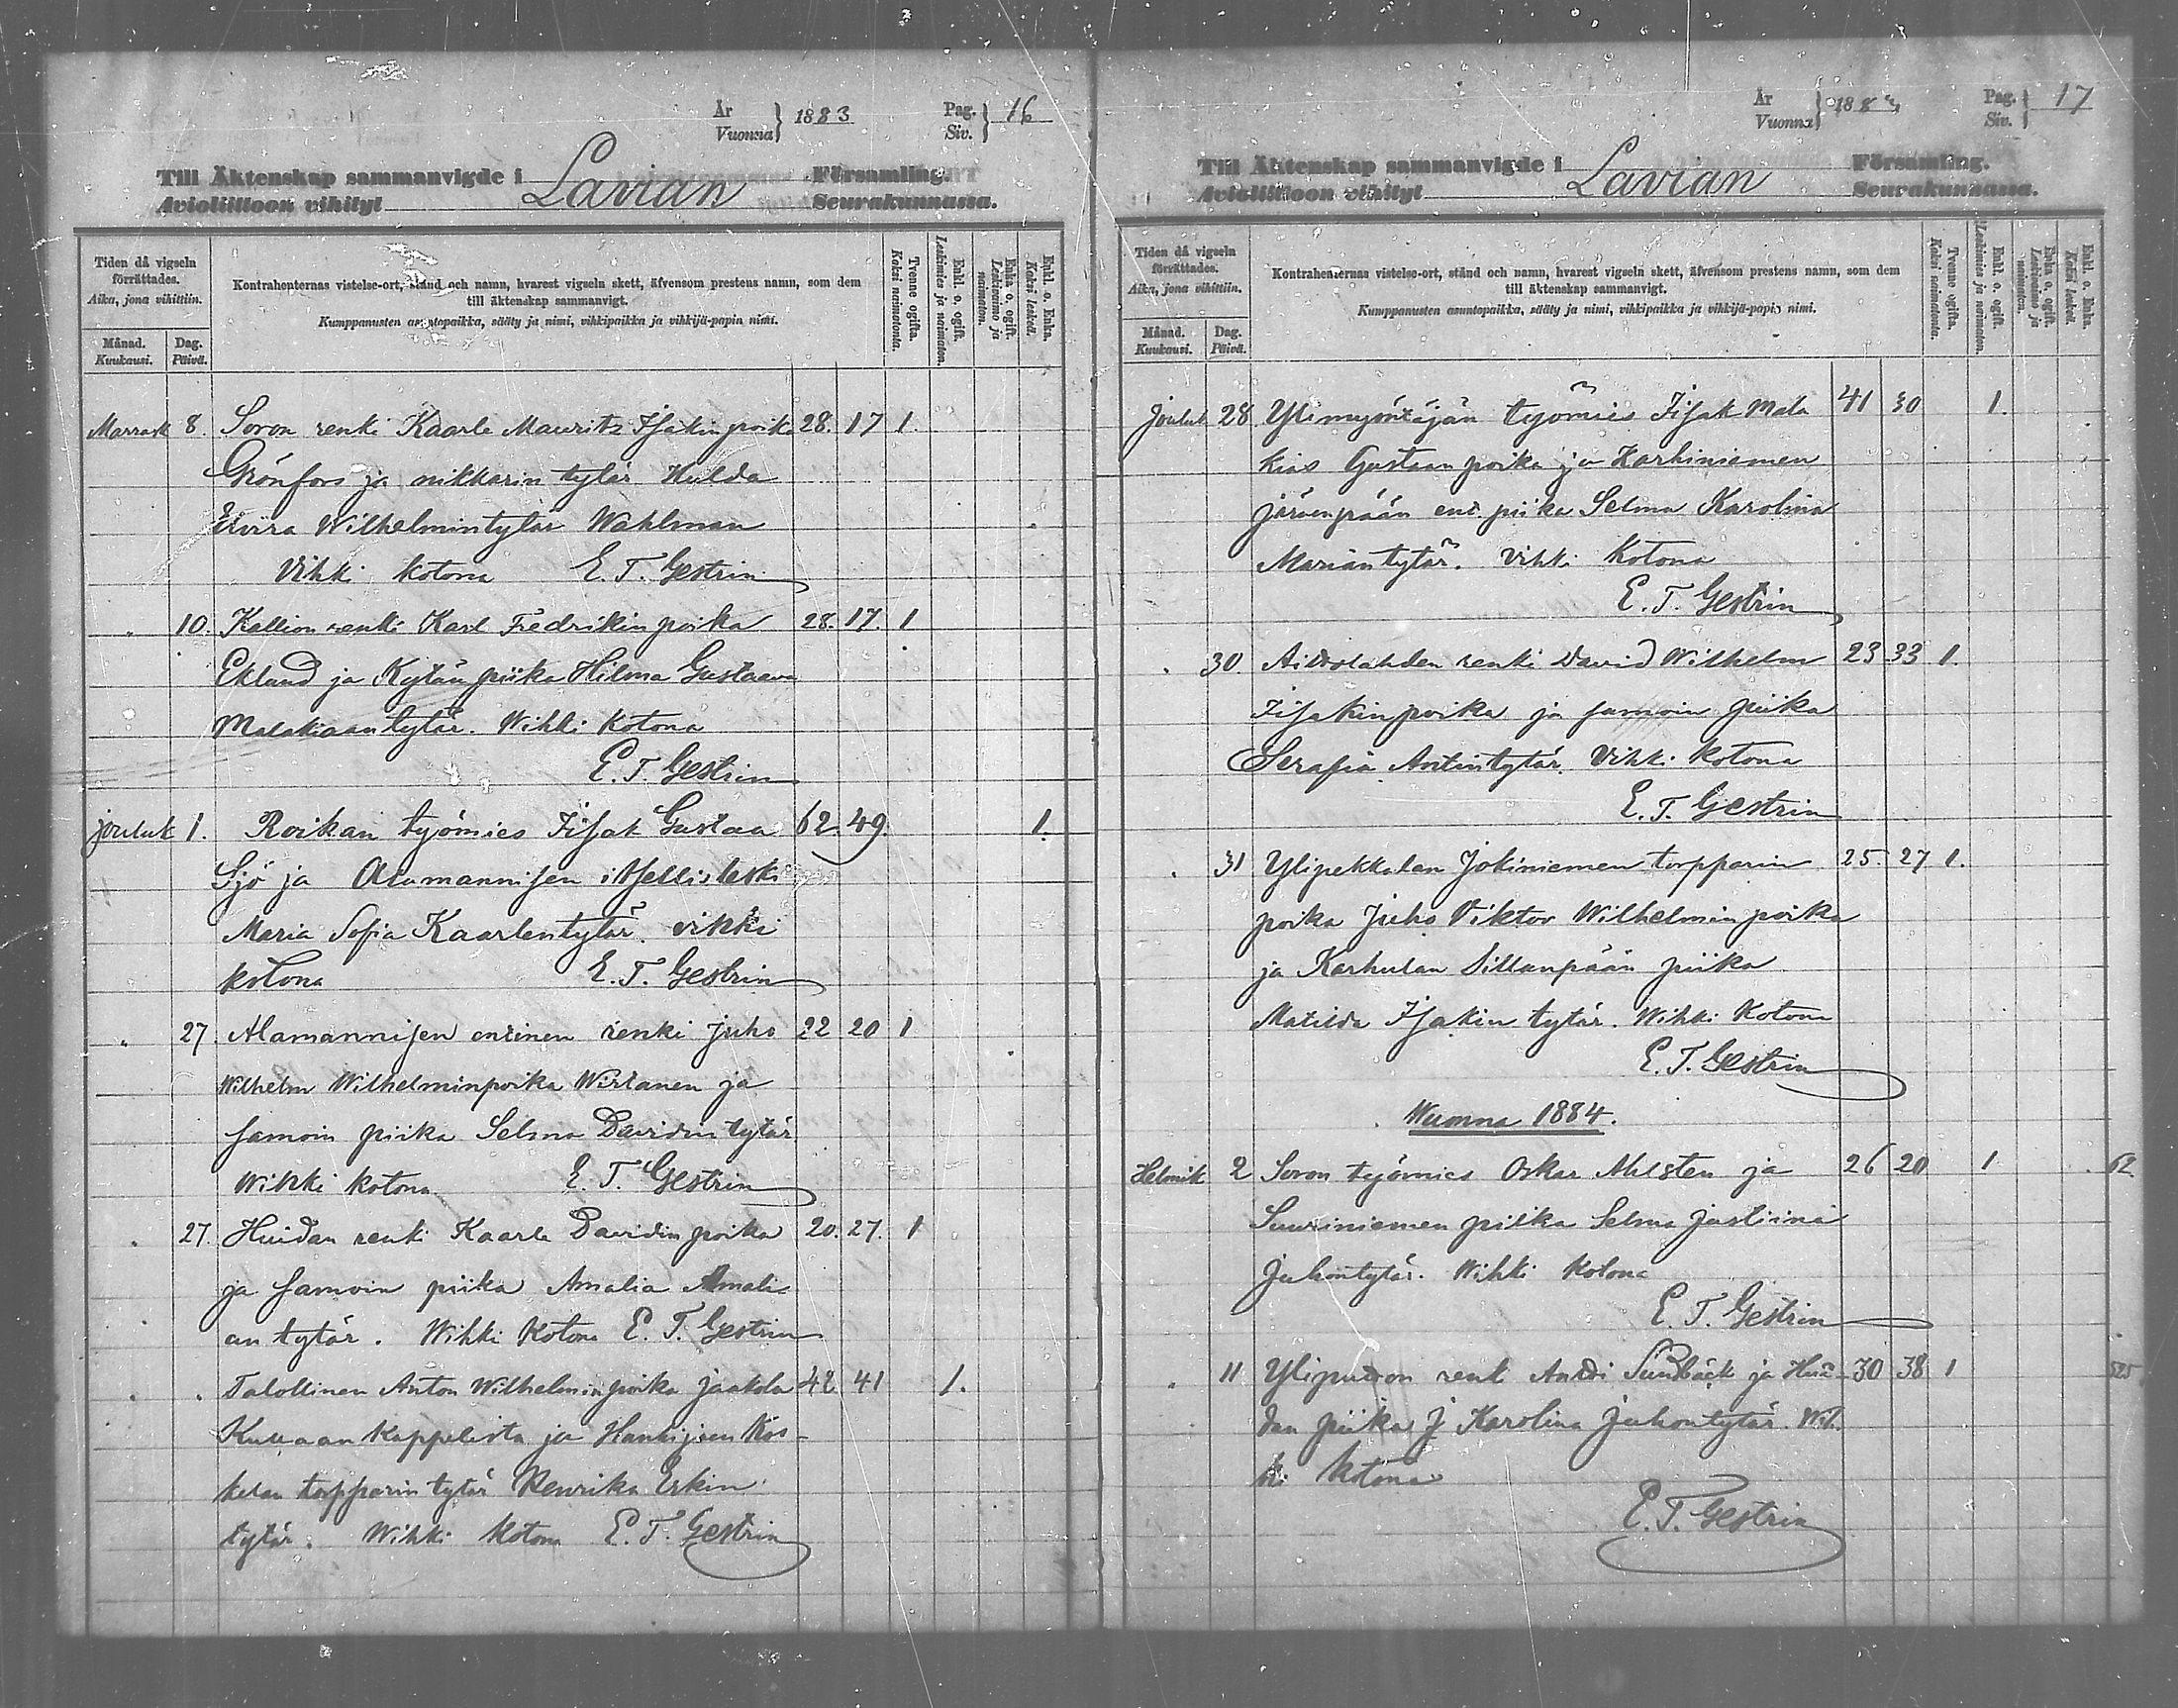 År
Vuonna } 1883
Pag.
Siv. } 16
Till Äktenskap sammanvigde i Lavian Församling.
Avioliittoon vihityt Seurakunnassa.
Tiden då vigseln förrättades.
Aika, jona vihittiin.
Månad.
Kuukausi.
Dag.
Päivä.
Kontrahenternas vistelse-ort, stånd och namn, hvarest vigseln skett, äfvensom prestens namn, som dem
till äktenskap sammanvigt.
Kumppanusten asuntopaikka, sääty ja nimi, vihkipaikka ja vihkijä-papin nimi.
Tvenne ogifta.
Kaksi naimatonta.
Enkl. o. ogift.
Leskimies ja naimaton.
Enka o. ogift.
Leskivaimo ja naimaton.
Enkl. o. Enka.
Kaksi leskeä.
Marrask 8. Soron renki Kaarle Mauritz Isakinpoika 28. 17 1.
Grönfors ja nikkarin tytär Hulda
Elvira Wilhelmintytär Wahlman
Vihki kotona E. T. Gestrin
" 10. Kallion renki Karl Fredrikinpoika 28. 17. 1
Eklund ja Kytän piika Hilma Gustaava
Malakiaantytär. Wihki kotona
E. T. Gestrin
Jouluk 1. Roikan työmies Iisak Gustaa 62. 49. 1.
Sjö ja Alamannisen itsellisleski
Maria Sofia Kaarlentytär. vihki
kotona E. T. Gestrin
" 27 Alamannisen entinen renki Juho 22 20 1
Wilhelm Wilhelminpoika Wirtanen ja
samoin piika Selma Davidin tytär
Wihki kotona E. T. Gestrin
" 27. Huidan renki Kaarle Davidinpoika 20. 27. 1
ja samoin piika Amalia Amali-
an tytär. Wihki kotona E. T. Gestrin
" " Talollinen Anton Wilhelmin poika Jaakola 42 41 1.
Kullaan kappelista ja Hanhijoen Kos-
kelan torpparin tytär Henrika Erkin
tytär. Wihki kotona E. T. Gestrin
År
Vuonna } 1883
Pag.
Siv. } 17
Till Äktenskap sammanvigde i Lavian Församling.
Avioliittoon vihityt Seurakunnassa.
Tiden då vigseln förrättades.
Aika, jona vihittiin.
Månad.
Kuukausi.
Dag.
Päivä.
Kontrahenternas vistelse-ort, stånd och namn, hvarest vigseln skett, äfvensom prestens namn, som dem
till äktenskap sammanvigt.
Kumppanusten asuntopaikka, sääty ja nimi, vihkipaikka ja vihkijä-papin nimi.
Tvenne ogifta.
Kaksi naimatonta.
Enkl. o. ogift.
Leskimies ja naimaton.
Enka o. ogift.
Leskivaimo ja naimaton.
Enkl. o. Enka.
Kaksi leskeä.
Jouluk 28 Ylimyöntäjän työmies Iisak Mala 41 30 1.
kias Gustaanpoika ja Karhiniemen
Järvenpään ent. piika Selma Karolina
Mariantytär. Vihki kotona
E. T. Gestrin
" 30. renki David Wilhelm 23 33 1.
Iisakinpoika ja samoin piika
Serafia Antintytär. Vihki kotona
E. T. Gestrin
" 31 Ylipekkalan Jokiniemen torpparin 25. 27 1.
poika Juho Viktor Wilhelmin poika
ja Karhulan Sillanpään piika
Matilda Isakin tytär. Wihki kotona
E. T. Gestrin
Wuonna 1884.
Helmik 2 Soron työmies Oskar Ahlsten ja 26 20 1 62.
Suuriniemen piika Selma Justiina
Juhontytär. Wihki kotona
E. T. Gestrin
" 11 Yliputron renk Antti Sundbäck ja Hui- 30 38 1 525
dan piika J Karolina Juhontytär. Wih
ki kotona
E. T. Gestrin